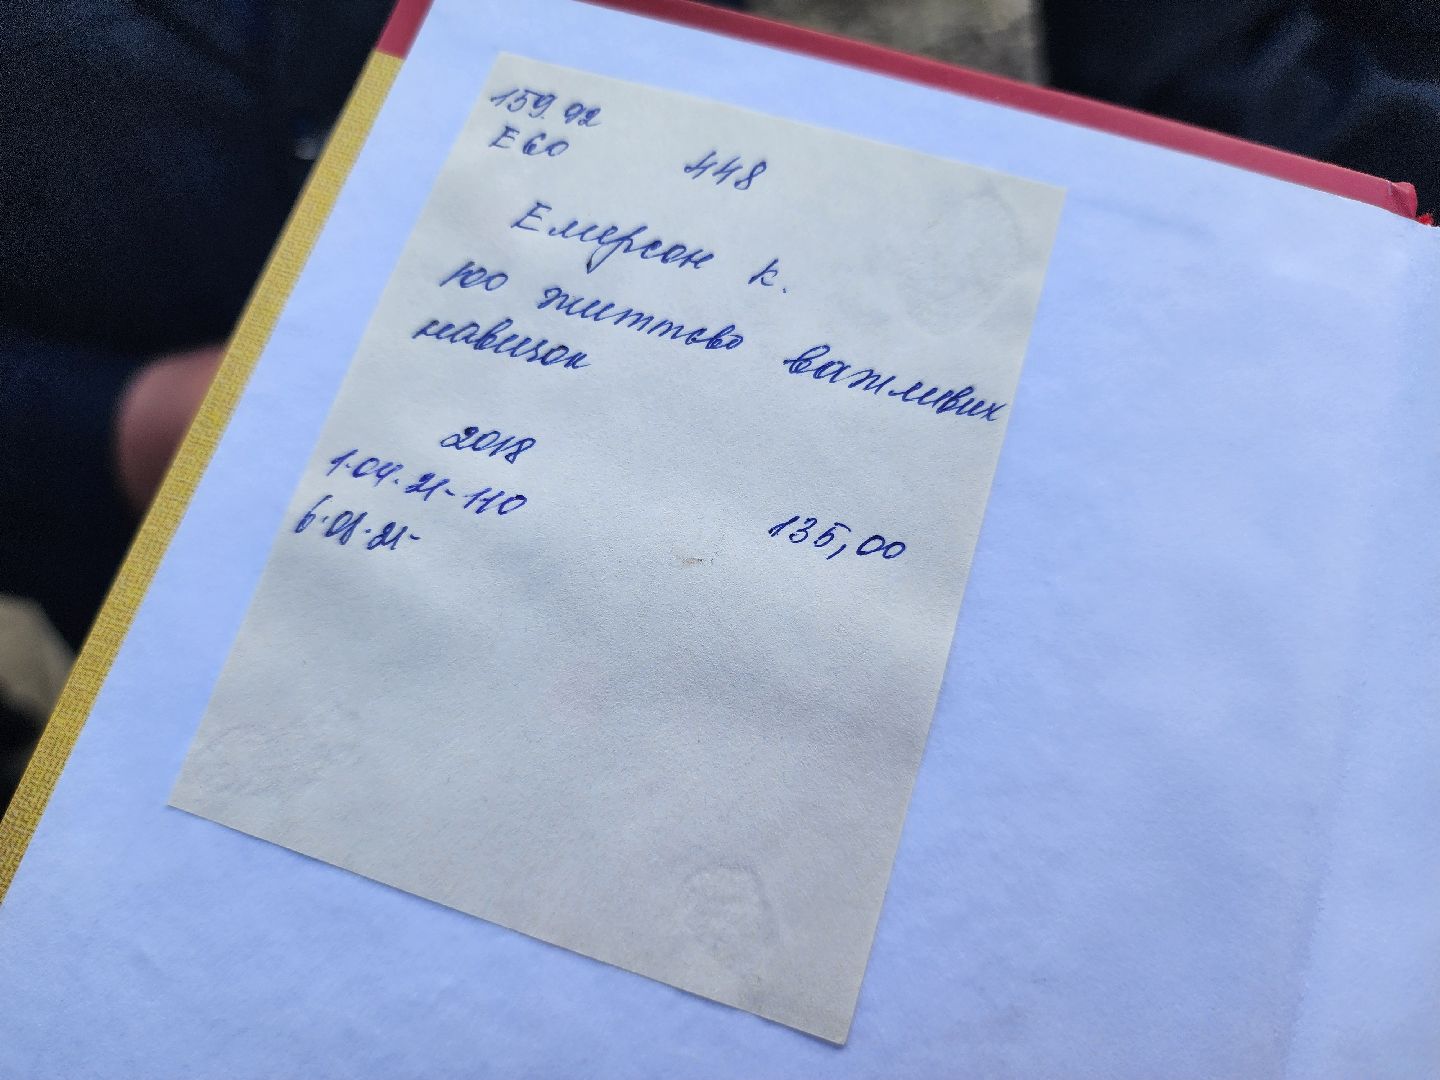 159.92
Е60
448
Емерсон К.
100 життєво важливих
навичок
2018
1.04.21-110
135,00
6.08.21-